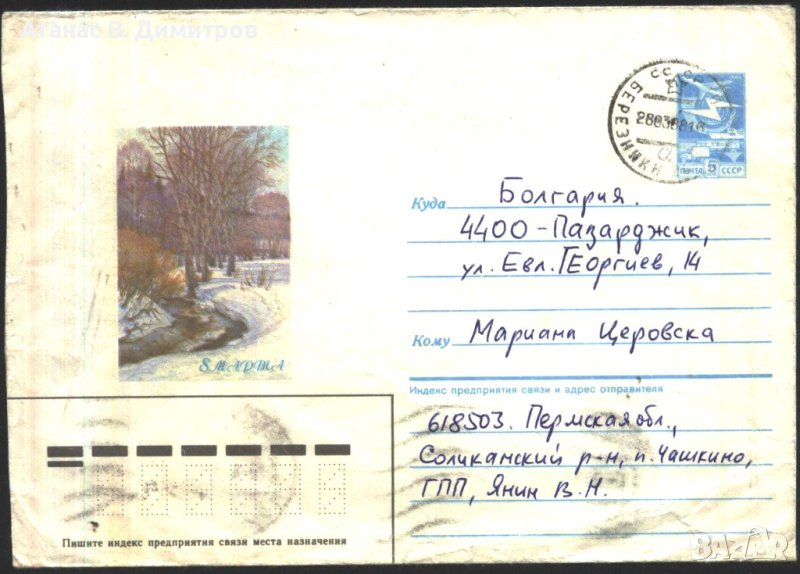 Атанас В. Димитров
СССР
БЕРЕЗНИКИ
ПОЧТА 5 СССР
Куда Болгария.
4400-Пазарджик,
ул. Евл. Георгиев, 14
Кому Мариана Церовска
8 МАРТА
Индекс предприятия связи и адрес отправителя
618503. Пермская обл.,
Соликамский р-н, п. Чашкино,
ГПП, Янин В.Н.
Пишите индекс предприятия связи места назначения
BAZAR